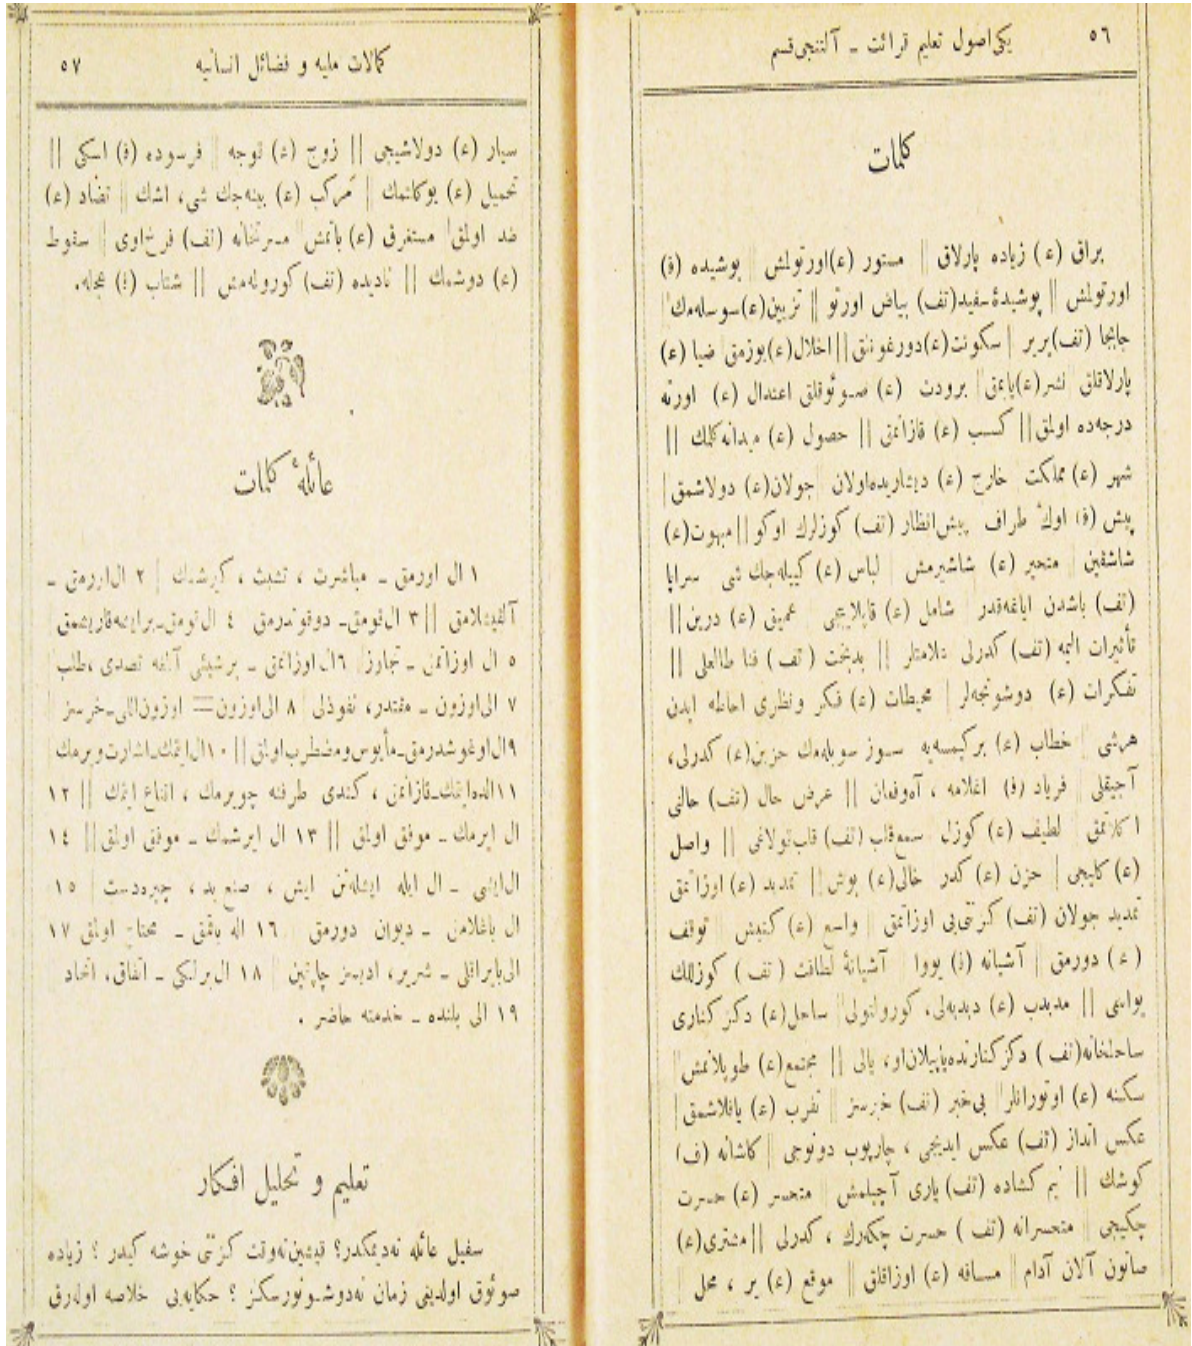 ٥٦
يكى اصول تعليم قرائت ـ آلتنجى قسم
كلمات
براق (ع) زياده پارلاق || مستور (ع) اورتولمش || پوشيده (ف)
اورتولمش || پوشيدۀ سفيد (تف) بياض اورتو || تزيين (ع) سوسله‌مك ||
جابجا (تف) يرير | سكونت (ع) دورغونلق || اخلال (ع) بوزمق ضيا (ع)
پارلاقلق || نشر (ع) يايمق || برودت (ع) صوئوقلق اعتدال (ع) اورته
درجه‌ده اولمق || كسب (ع) قازانمق || حصول (ع) ميدانه كلمك ||
شهر (ع) مملكت خارج (ع) ديشاريده اولان جولان (ع) دولاشمق |
پيش (ف) اوك طراف پيش انظار (تف) كوزلرك اوكو || مبهوت (ع)
شاشقين || متحير (ع) شاشيرمش | لباس (ع) كييله‌جك شى سراپا
(تف) باشدن اياغه‌قدر شامل (ع) قاپلاييجى عميق (ع) درين ||
تأثيرات اليمه (تف) كدرلى علامتلر || بدبخت (تف) فنا طالعلى ||
تفكرات (ع) دوشونجه‌لر | محيطات (ع) فكر ونظرى احاطه ايدن
هرشى || خطاب (ع) بركيمسه‌يه سوز سويله‌مك حزين (ع) كدرلى،
آجيقلى || فرياد (ف) اغلامه ، آه‌وفغان || عرض حال (تف) حالنى
اكلاتمق لطيف (ع) كوزل سمع قلب (تف) قلب قولاغى || واصل
(ع) كليجى | حزن (ع) كدر خالى (ع) بوش || تمديد (ع) اوزاتمق
تمديد جولان (تف) كزنتى‌يى اوزاتمق || واسع (ع) كنيش || توقف
(ع) دورمق || آشيانه (ف) يووا || آشيانۀ لطافت (تف) كوزللك
يواسى || مدبدب (ع) دبدبه‌لى، كورولتولى || ساحل (ع) دكز كنارى
ساحلخانه (تف) دكز كنارنده ياپيلان او، يالى || مجتمع (ع) طوپلانمش ||
سكنه (ع) اوتورانلر || بى خبر (تف) خبرسز || تقرب (ع) ياقلاشمق |
عكس انداز (تف) عكس ايديجى ، چارپوب دونوجى || كاشانه (ف)
كوشك || نيم كشاده (تف) يارى آچيلمش || متحسر (ع) حسرت
چكيجى || متحسرانه (تف) حسرت چكه‌رك ، كدرلى || مشترى (ع)
صاتون آلان آدام || مسافه (ع) اوزاقلق || موقع (ع) ير ، محل
كمالات مليه و فضائل انسانيه
٥٧
سيار (ع) دولاشيجى || زوج (ع) قوجه || فرسوده (ف) اسكى ||
تحميل (ع) يوكلتمك | مركب (ع) بينه‌جك شى، اشك || تضاد (ع)
ضد اولمق || مستغرق (ع) باتمش || مسرتخانه (تف) فرح اوى || سقوط
(ع) دوشمك || ناديده (تف) كورولمه‌مش || شتاب (ف) عجله.
عائلۀ كلمات
١ ال اورمق ـ مباشرت ، تشبث ، كيرشمك | ٢ ال اورمق ـ
آلقيشلامق || ٣ ال قومق ـ دوقوندرمق ٤ ال قومق ـ برايشه قاريشمق
٥ ال اوزاتمق ـ تجاوز || ٦ ال اوزاتمق ـ برشيئى آلمغه تصدى ،طلب
٧ الى اوزون ـ مقتدر، نفوذلى | ٨ الى اوزون = اوزون اللى ـ خرسز
٩ ال اوغوشدرمق ـ مأيوس ومضطرب اولمق || ١٠ ال ايتمك ـ اشارت ويرمك
١١ الده ايتمك ـ قازانمق ، كندى طرفنه چويرمك ، اقناع ايتمك || ١٢
ال ايرمك ـ موفق اولمق || ١٣ ال ايرشمك ـ موفق اولمق || ١٤
ال ايشى ـ ال ايله ايشله‌نن ايش ، صنع يد ، چيره‌دست | ١٥
ال باغلامق ـ ديوان دورمق || ١٦ اله باقمق ـ محتاج اولمق ١٧
الى بايراقلى ـ شرير، ادبسز چاپقين || ١٨ ال برلكى ـ اتفاق، اتحاد
١٩ الى يلنده ـ خدمته حاضر .
تعليم و تحليل افكار
سفيل عائله نه‌ديمكدر؟ قيشين نه‌وقت كزنتى خوشه كيدر ؟ زياده
صوئوق اولديغى زمان نه‌دوشونورسكز ؟ حكايه‌يى خلاصه اوله‌رق